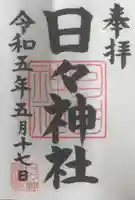 奉拝
日々神社
令和五年五月十七日